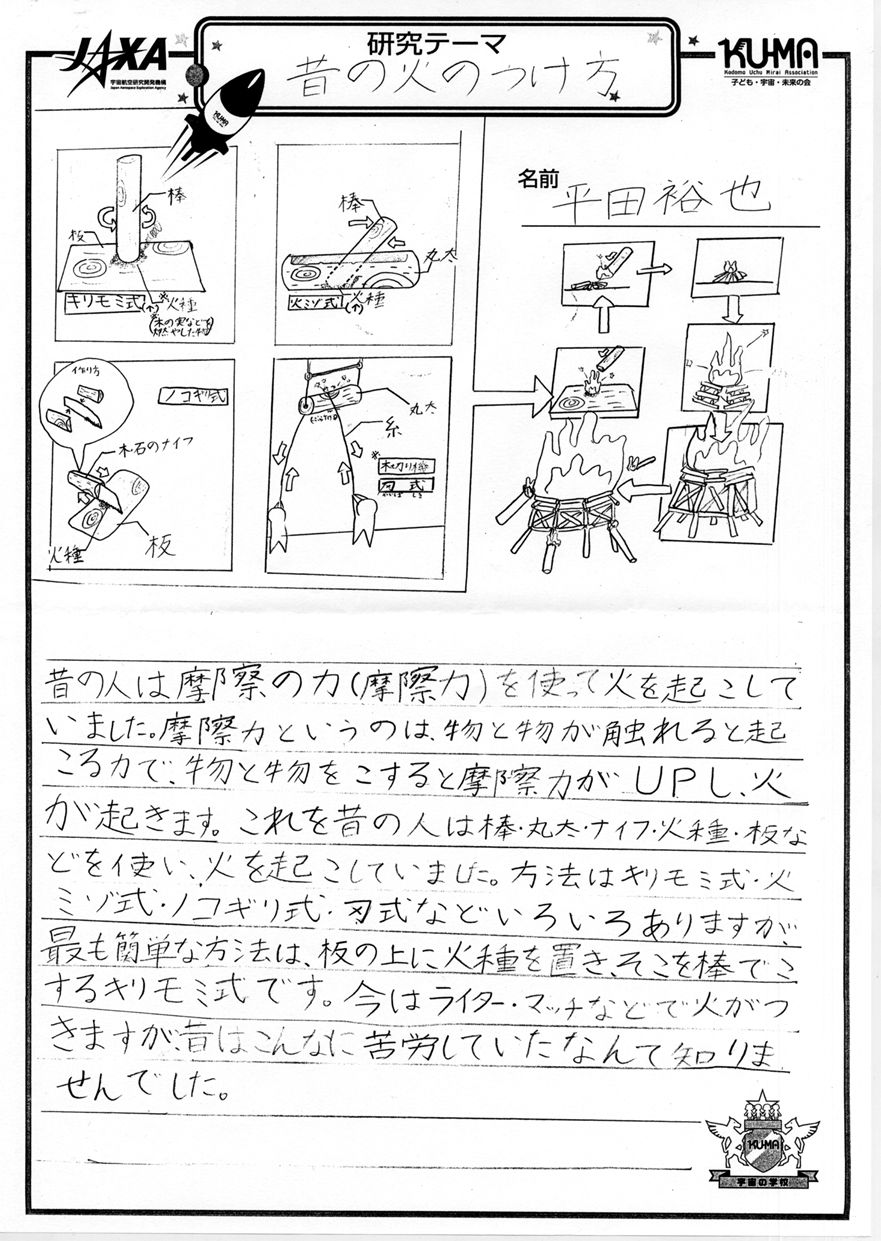 JAXA
宇宙航空研究開発機構
Japan Aerospace Exploration Agency
研究テーマ
昔の火のつけ方
KU-MA
Kodomo Uchu Mirai Association
子ども・宇宙・未来の会
KUMA
名前
平田裕也
棒
板
キリモミ式
(↑)
火種
棒
丸太
火ミゾ式
(↑)
火種
作り方
ノコギリ式
木石のナイフ
火種
板
丸太
糸
木切り棒
刃式
昔の人は摩擦の力(摩擦力)を使って火を起こして
いました。摩擦力というのは、物と物が触れると起
こる力で、物と物をこすると摩擦力がUPし、火
が起きます。これを昔の人は棒・丸太・ナイフ・火種・板な
どを使い、火を起こしていました。方法はキリモミ式・火
ミゾ式・ノコギリ式・刃式などいろいろありますが、
最も簡単な方法は、板の上に火種を置き、そこを棒でこ
するキリモミ式です。今はライター・マッチなどで火がつ
きますが、昔はこんなに苦労していたなんて知りま
せんでした。
KUMA
宇宙の学校